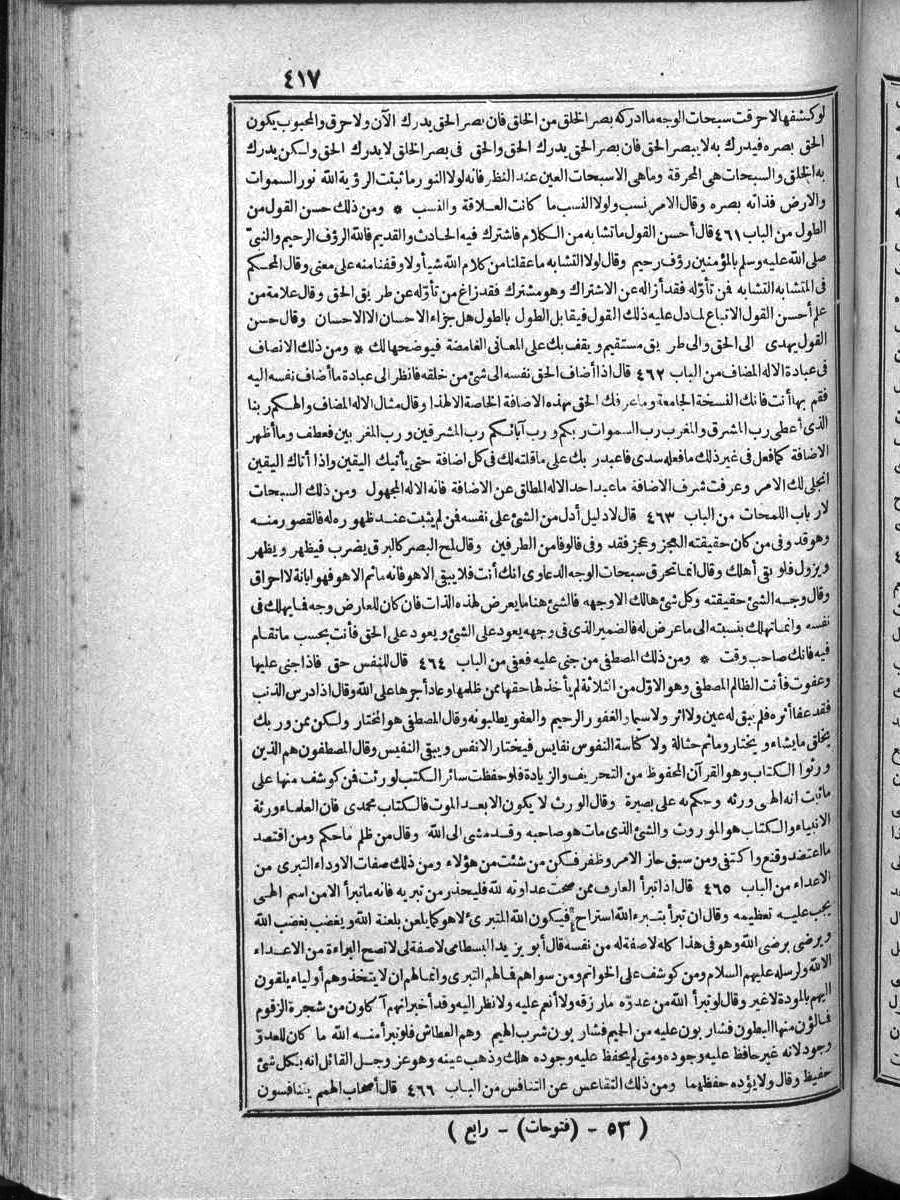 ٤١٧
لو كشفها لاحرقت سبحات الوجه ما ادركه بصر الخلق من الخلق فان بصر الحق يدرك الآن ولا حرق والمحبوب يكون
الحق بصره فيدرك به لا ببصر الحق فان بصر الحق يدرك الحق والحق فى بصر الخلق لا يدرك الحق ولكن يدرك
به الخلق والسبحات هى المحرقة وما هى الا سبحات العين عند النظر فانه لولا النور ما ثبتت الرؤية الله نور السموات
والارض فذاته بصره وقال الامر نسب ولولا النسب ما كانت العلاقة والنسب * ومن ذلك حسن القول من
الطول من الباب ٤٦١ قال أحسن القول ما تشابه من الكلام فاشترك فيه الحادث والقديم فالله الرؤف الرحيم والنبىّ
صلى الله عليه وسلم بالمؤمنين رؤف رحيم وقال لولا التشابه ما عقلنا من كلام الله شيأ ولا وقفنا منه على معنى وقال المحكم
فى المتشابه التشابه فمن تأوّله فقد أزاله عن الاشتراك وهو مشترك فقد زاغ من تأوّله عن طريق الحق وقال علامة من
علم أحسن القول الاتباع لما دل عليه ذلك القول فيقابل الطول بالطول هل جزاء الاحسان الا الاحسان وقال حسن
القول يهدى الى الحق والى طريق مستقيم ويقف بك على المعانى الغامضة فيوضحها لك * ومن ذلك الانصاف
فى عبادة الاله المضاف من الباب ٤٦٢ قال اذا أضاف الحق نفسه الى شئ من خلقه فانظر الى عبادة ما أضاف نفسه اليه
فقم بها أنت فانك النسخة الجامعة وما عرفك الحق بهذه الاضافة الخاصة الا لهذا وقال مثال الاله المضاف والهكم ربنا
الذى أعطى رب المشرق والمغرب رب السموات ربكم ورب آبائكم رب المشرقين ورب المغربين فعطف وما أظهر
الاضافة كما فعل فى غير ذلك ما فعله سدى فاعبد ربك على ما قلته لك فى كل اضافة حتى يأتيك اليقين واذا أتاك اليقين
انجلى لك الامر وعرفت شرف الاضافة ما عبد احد الاله المطلق عن الاضافة فانه الاله المجهول ومن ذلك السبحات
لارباب اللمحات من الباب ٤٦٣ قال لا دليل أدل من الشئ على نفسه فمن لم يثبت عند ظهوره له فالقصور منه
وهو قد وفى من كان حقيقته العجز وعجز فقد وفى فالوفا من الطرفين وقال لمح البصر كالبرق يضرب فيظهر ويظهر
ويزول فلو بقى أهلك وقال انما تحرق سبحات الوجه الدعاوى انك أنت فلا يبقى الا هو فانه ما ثم الا هو فهو ابانة لا احراق
وقال وجه الشئ حقيقته وكل شئ هالك الا وجهه فالشئ هنا ما يعرض لهذه الذات فان كان للعارض وجه فما يهلك فى
نفسه وانما تهلك بنسبته الى ما عرض له فالضمير الذى فى وجهه يعود على الشئ ويعود على الحق فأنت بحسب ما تقام
فيه فانك صاحب وقت * ومن ذلك المصطفى من جنى عليه فعفى من الباب ٤٦٤ قال للنفس حق فاذا جنى عليها
وعفوت فأنت الظالم المصطفى وهو الاوّل من الثلاثة لم يأخذ لها حقها ممن ظلمها وعاد أجرها على الله وقال اذا درس الذنب
فقد عفا أثره فلم يبق له عين ولا اثر ولا سيما والغفور الرحيم والعفو يطلبونه وقال المصطفى هو المختار ولكن ممن وربك
يخلق ما يشاء ويختار وما ثم حثالة ولا كناسة النفوس نفايس فيختار الانفس ويبقى النفيس وقال المصطفون هم الذين
ورثوا الكتاب وهو القرآن المحفوظ من التحريف والزيادة فلو حفظت سائر الكتب لورثت فمن كوشف منها على
ما ثبت انه الهى ورثه وحكم به على بصيرة وقال الورث لا يكون الا بعد الموت فالكتاب محمدى فان العلماء ورثة
الانبياء والكتاب هو الموروث والشئ الذى مات هو صاحبه وقد مشى الى الله وقال من ظلم ما حكم ومن اقتصد
ما اعتضد وقنع واكتفى ومن سبق حاز الامر وظفر فكن من شئت من هؤلاء ومن ذلك صفات الاوداء التبرى من
الاعداء من الباب ٤٦٥ قال اذا تبرأ العارف ممن صحت عداوته لله فليحذر من تبريه فانه ما تبرأ الا من اسم الهى
يجب عليه تعظيمه وقال ان تبرأ بتبرء الله استراح فيكون الله المتبرئ لا هو كما يلعن بلعنة الله ويغضب بغضب الله
ويرضى برضى الله وهو فى هذا كله لا صفة له من نفسه قال أبو يزيد البسطامى لا صفة لى لا تصح البراءة من الاعداء
الا لله ولرسله عليهم السلام ومن كوشف على الخواتم ومن سواهم فما لهم التبرى وانما لهم ان لا يتخذوهم أولياء يلقون
اليهم بالمودة لا غير وقال لو تبرأ الله من عدوّه ما رزقه ولا أنعم عليه ولا نظر اليه وقد أخبر انهم آكلون من شجرة الزقوم
فمالؤن منها البطون فشاربون عليه من الحميم فشاربون شرب الهيم وهم العطاش فلو تبرأ منه الله ما كان للعدوّ
وجود لانه غير حافظ عليه وجوده ومتى لم يحفظ عليه وجوده هلك وذهب عينه وهو عز وجل القائل انه بكل شئ
حفيظ وقال ولا يؤده حفظهما ومن ذلك التقاعس عن التنافس من الباب ٤٦٦ قال أصحاب الهمم يتنافسون
( ٥٣ - (فتوحات) - رابع )